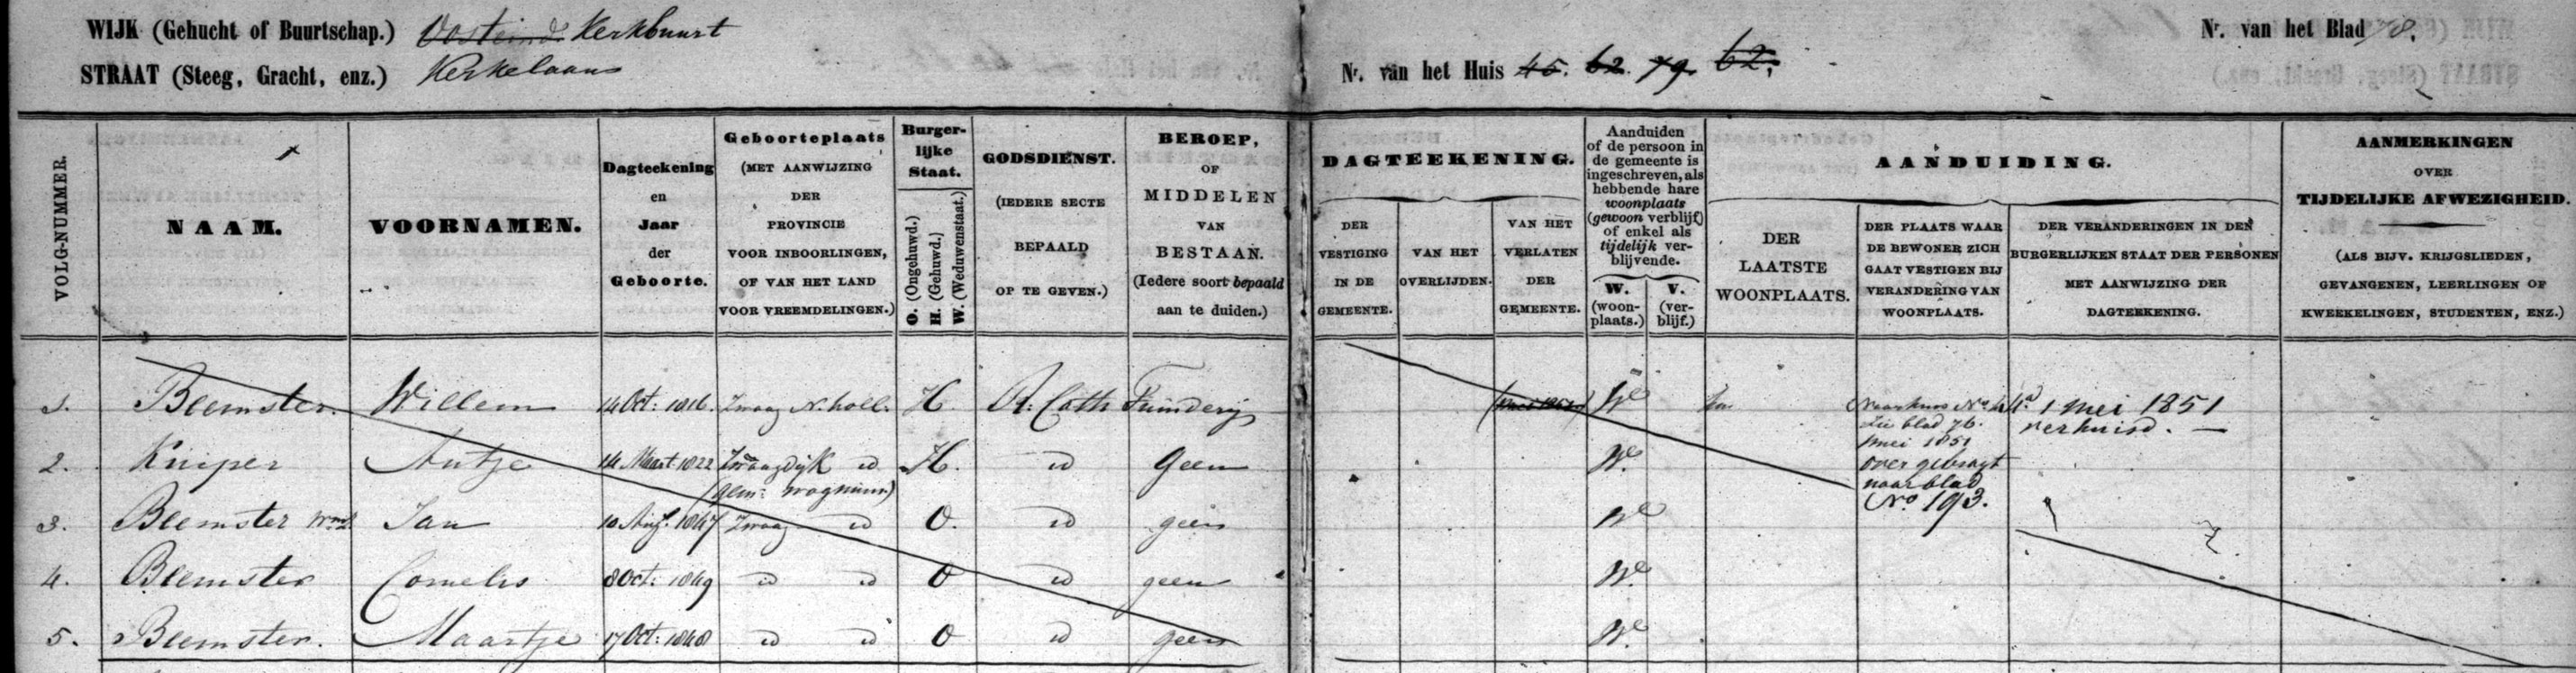 WIJK (Gehucht of Buurtschap.) Oosteinde Kerkbuurt
STRAAT (Steeg, Gracht, enz.) Kerkelaan
Nr. van het Huis 45. 62. 79. 62.
Nr. van het Blad 78.
VOLG-NUMMER.
NAAM.
VOORNAMEN.
Dagteekening
en
Jaar
der
Geboorte.
Geboorteplaats
(MET AANWIJZING
DER
PROVINCIE
VOOR INBOORLINGEN,
OF VAN HET LAND
VOOR VREEMDELINGEN.)
Burger-
lijke
Staat.
O. (Ongehuwd.)
H. (Gehuwd.)
W. (Weduwenstaat.)
GODSDIENST.
(IEDERE SECTE
BEPAALD
OP TE GEVEN.)
BEROEP,
OF
MIDDELEN
VAN
BESTAAN.
(Iedere soort bepaald
aan te duiden.)
DAGTEEKENING.
DER
VESTIGING
IN DE
GEMEENTE.
VAN HET
OVERLIJDEN.
VAN HET
VERLATEN
DER
GEMEENTE.
Aanduiden
of de persoon in
de gemeente is
ingeschreven, als
hebbende hare
woonplaats
(gewoon verblijf)
of enkel als
tijdelijk ver-
blijvende.
W.
(woon-
plaats.)
V.
(ver-
blijf.)
AANDUIDING.
DER
LAATSTE
WOONPLAATS.
DER PLAATS WAAR
DE BEWONER ZICH
GAAT VESTIGEN BIJ
VERANDERING VAN
WOONPLAATS.
DER VERANDERINGEN IN DEN
BURGERLIJKEN STAAT DER PERSONEN
MET AANWIJZING DER
DAGTEEKENING.
AANMERKINGEN
OVER
TIJDELIJKE AFWEZIGHEID.
(ALS BIJV. KRIJGSLIEDEN,
GEVANGENEN, LEERLINGEN OF
KWEEKELINGEN, STUDENTEN, ENZ.)
1. Beemster Willem 14 Oct: 1816. Zwaag N. holl. H R: Cath Tuinderij We
Naar huis No.
Zie blad 76.
mei 1851
over gebragt
naar blad
No. 193.
1 mei 1851
verhuisd. —
2. Kuiper Antje 14 Maart 1822 Zwaagdijk id H. id Geen We
(gem: wognum)
3. Beemster Wmz Jan 10 Aug. 1847 Zwaag id O. id geen We
4. Beemster Cornelis 8 Oct: 1849 id id O id geen We
5. Beemster. Maartje 17 Oct: 1848 id id O id geen We